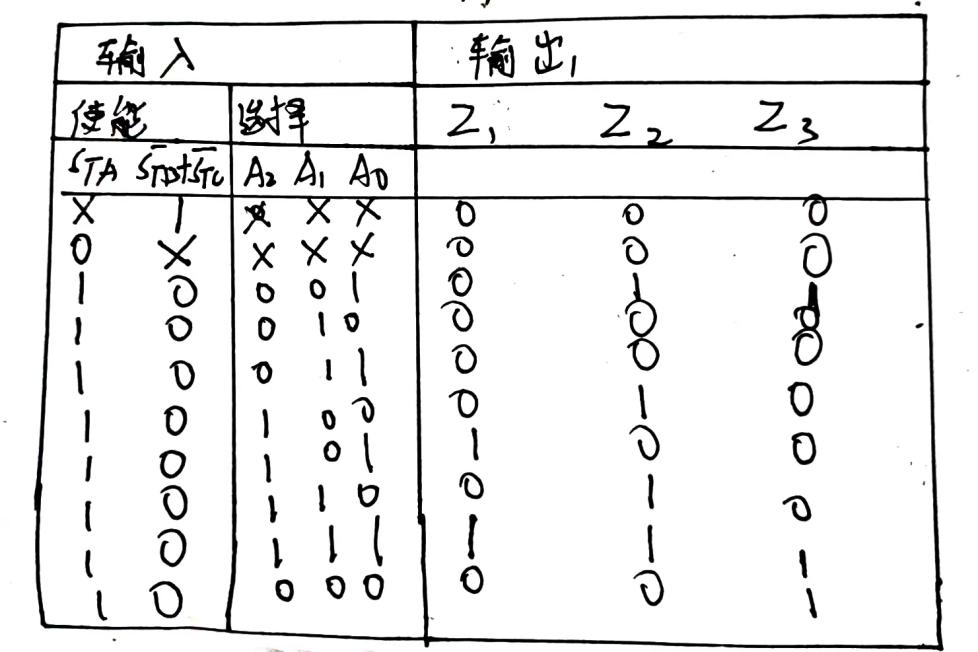 输入 输出
使能 选择 Z₁ Z₂ Z₃
STA S̅TB+S̅TC A₂ A₁ A₀
X 1 X X X 0 0 0
0 X X X X 0 0 0
1 0 0 0 1 0 1 1
1 0 0 1 0 0 0 0
1 0 0 1 1 0 0 0
1 0 1 0 0 0 1 0
1 0 1 0 1 1 0 0
1 0 1 1 0 0 1 0
1 0 1 1 1 1 1 1
1 0 0 0 0 0 0 1